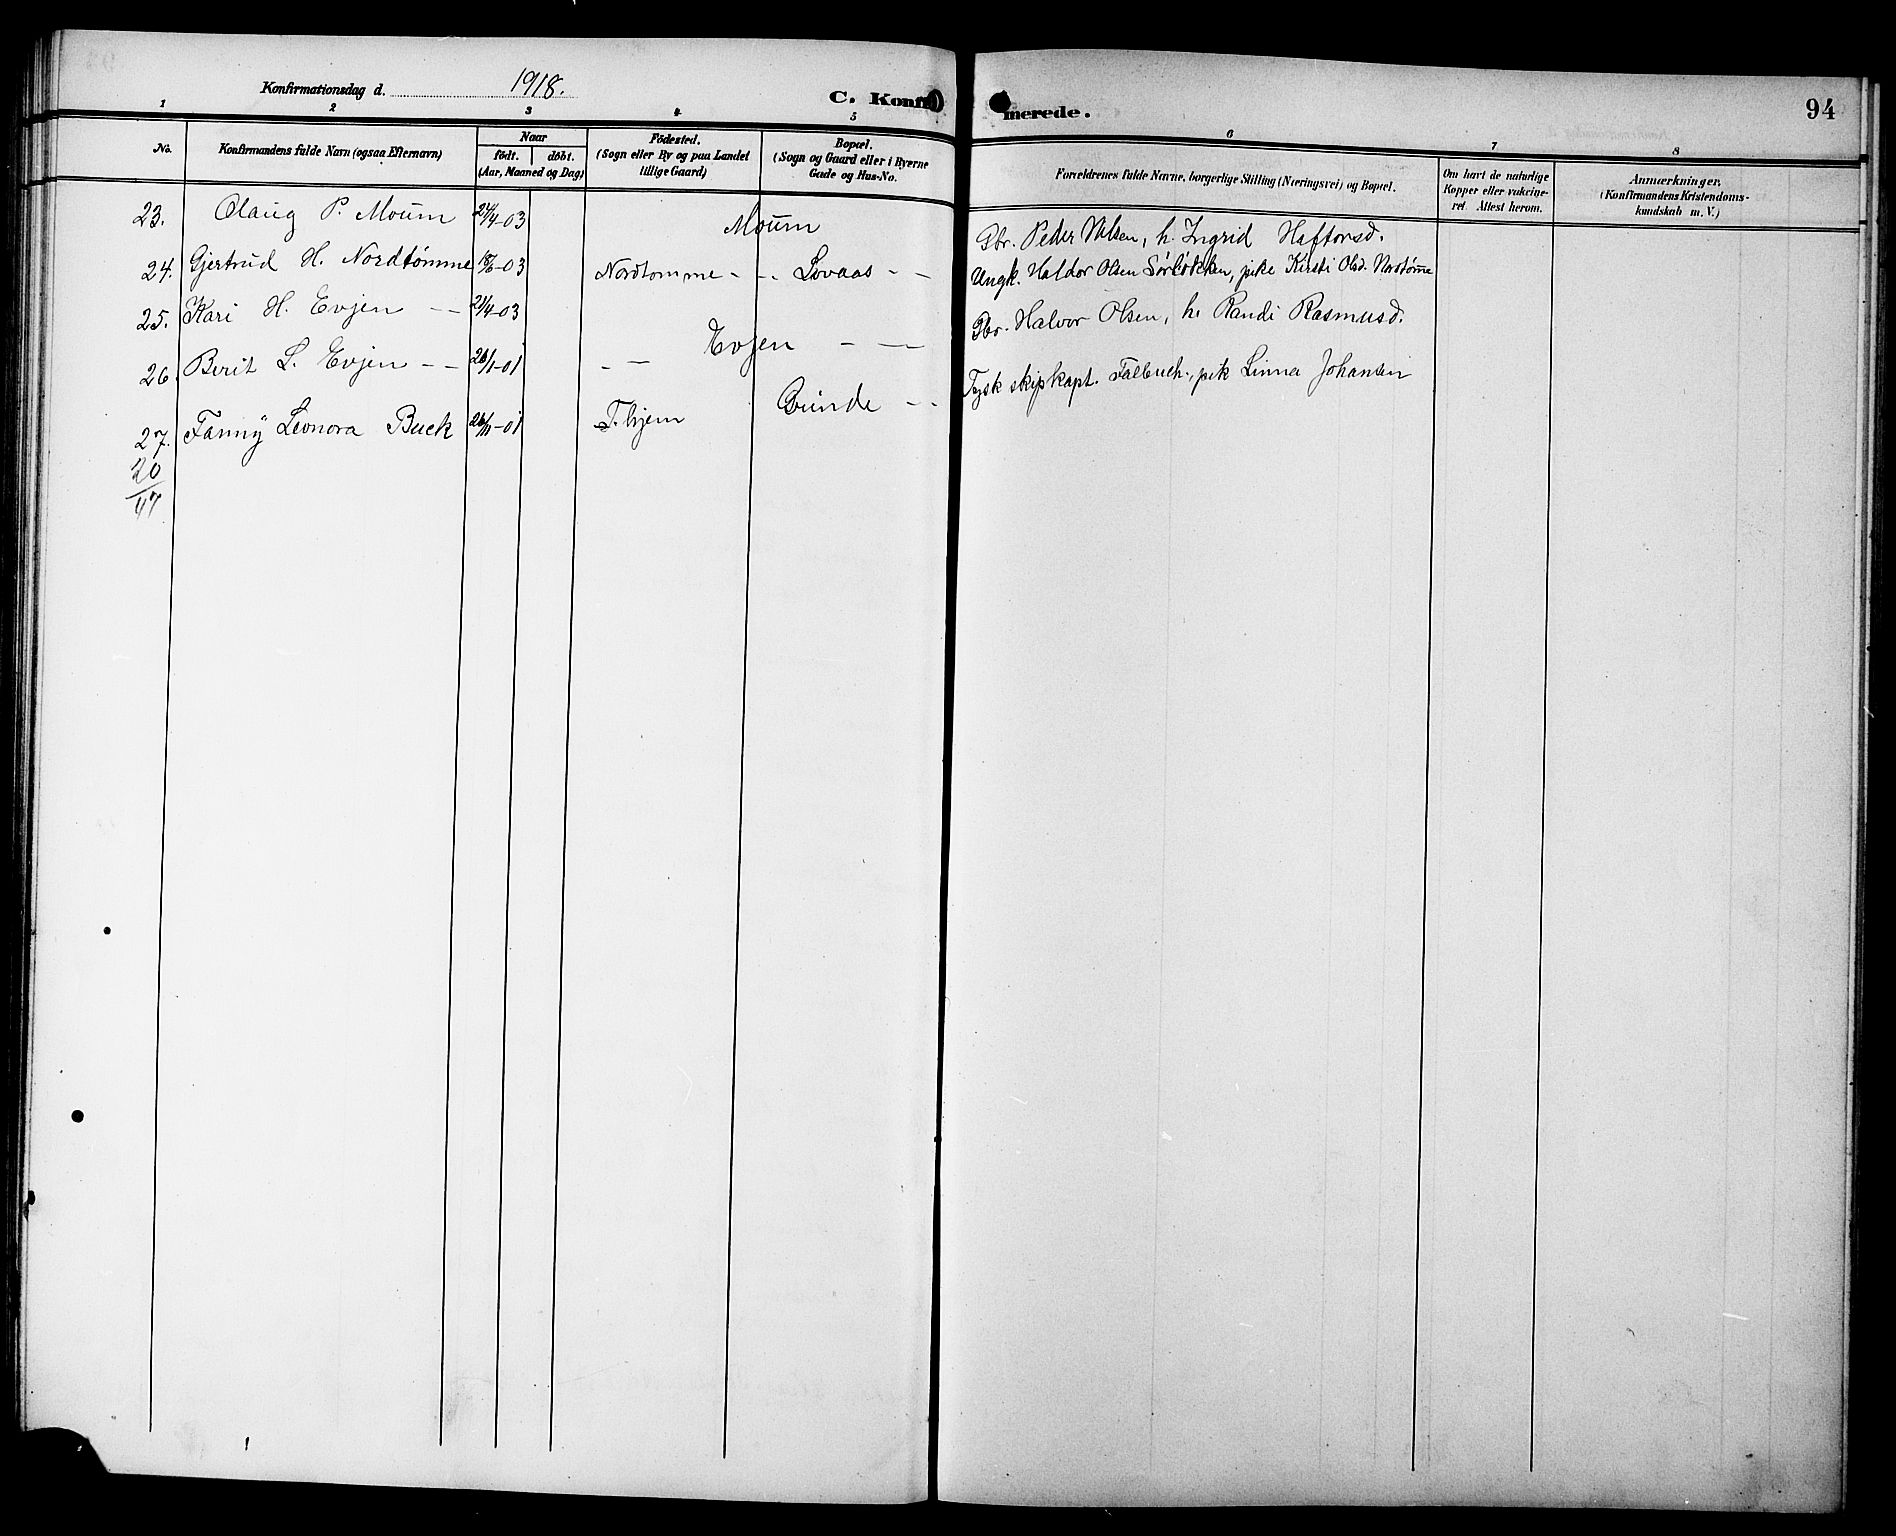 Konfirmationsdag d. 1918.
C. Konfirmerede.
94
1 2 3 4 5 6 7 8
No.
Konfirmandens fulde Navn (ogsaa Efternavn)
Naar
födt. döbt.
(Aar, Maaned og Dag)
Födested.
(Sogn eller By og paa Landet
tillige Gaard)
Bopæl.
(Sogn og Gaard eller i Byerne
Gade og Hus-No.
Forældrenes fulde Navne, borgerlige Stilling (Næringsvei) og Bopæl.
Om havt de naturlige
Kopper eller vakcine-
ret. Attest herom.
Anmærkninger.
(Konfirmandens Kristendoms-
kundskab m. V.)
23. Olaug P. Moum 24/4-03 Moum Gbr. Peder Nilsen, h. Ingrid Haftorsd.
24. Gjertrud H. Nordtømme 18/6-03 Nordtomme - - - Lovaas - - Ungk. Haldor Olsen Sørløkken, pike Kirsti Olsd. Nordtømme
25. Kari H. Evjen - - 21/4-03 Evjen - - Gbr. Halvor Olsen, h. Randi Rasmusd.
26. Berit L. Evjen - - 26/1-01 - -
27. Fanny Leonora Buck 26/11-01 T.hjem Grinde - - Tysk skipskapt. Falbuch, pik Linna Johansen
20
47